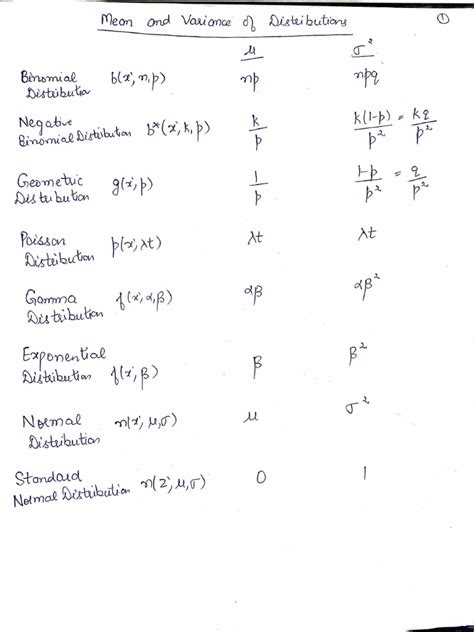 Mean and Variance of Distributions ①
μ σ²
Binomial Distribution b(x; n, p) np npq
Negative Binomial Distribution b*(x; k, p) k/p k(1-p)/p² = kq/p²
Geometric Distribution g(x; p) 1/p 1-p/p² = q/p²
Poisson Distribution p(x; λt) λt λt
Gamma Distribution f(x; α, β) αβ αβ²
Exponential Distribution f(x; β) β β²
Normal Distribution n(x; μ, σ) μ σ²
Standard Normal Distribution n(Z; μ, σ) 0 1